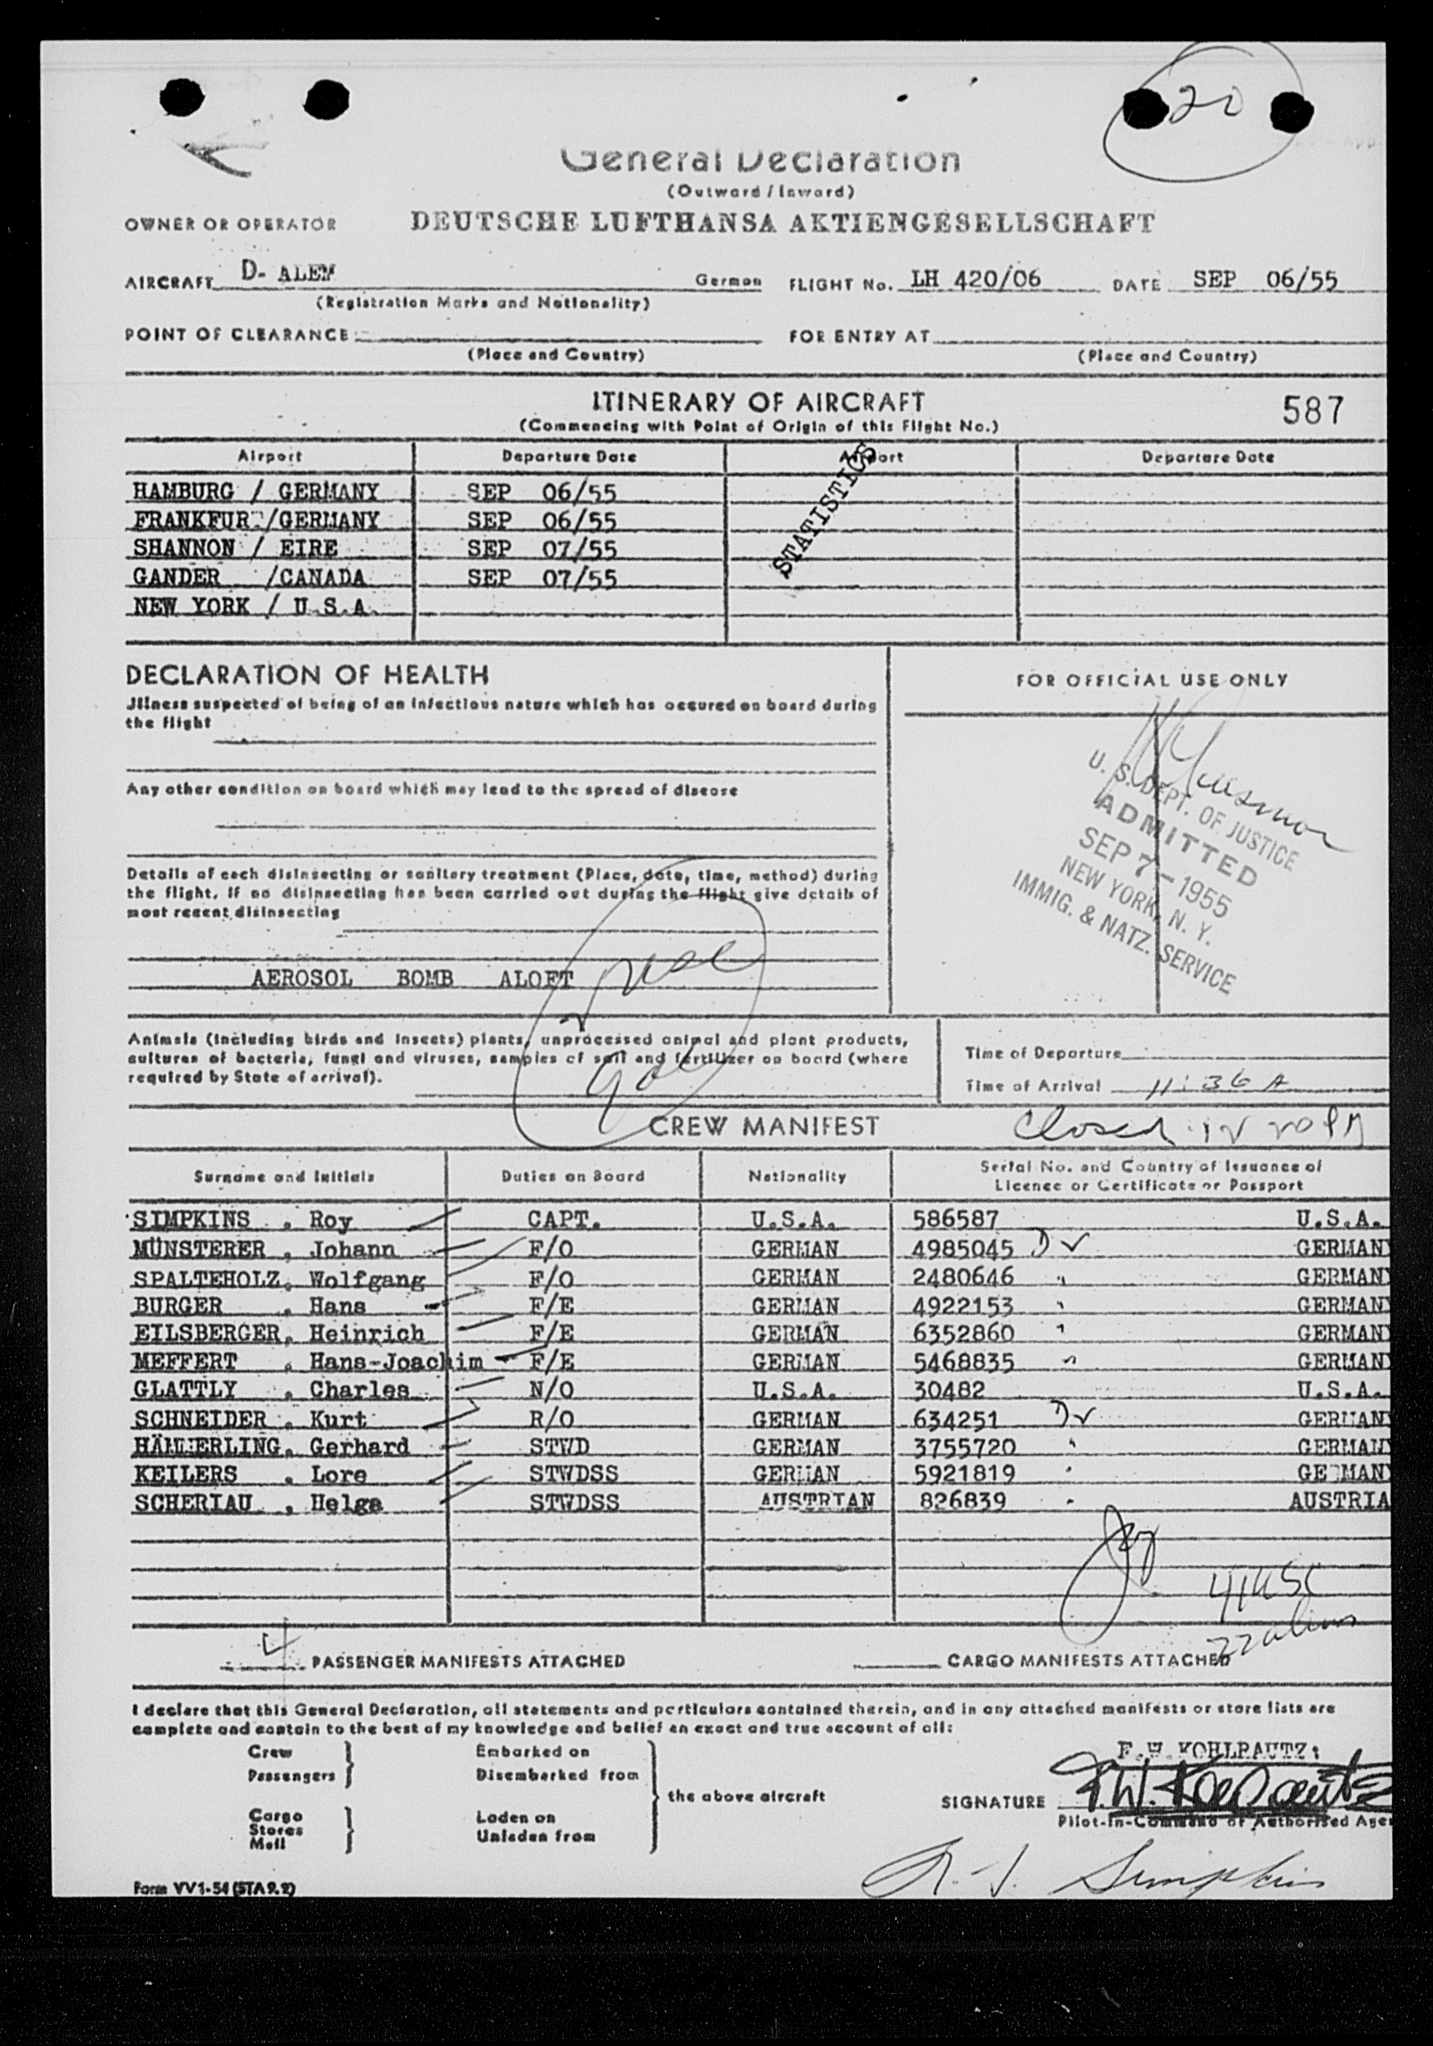 20
General Declaration
(Outward / Inward)
OWNER OR OPERATOR DEUTSCHE LUFTHANSA AKTIENGESELLSCHAFT
AIRCRAFT D- ALEM German FLIGHT No. LH 420/06 DATE SEP 06/55
(Registration Marks and Nationality)
POINT OF CLEARANCE: FOR ENTRY AT
(Place and Country) (Place and Country)
ITINERARY OF AIRCRAFT 587
(Commencing with Point of Origin of this Flight No.)
Airport Departure Date Airport Departure Date
STATISTICS
HAMBURG / GERMANY SEP 06/55
FRANKFURT/GERMANY SEP 06/55
SHANNON / EIRE SEP 07/55
GANDER /CANADA SEP 07/55
NEW YORK / U.S.A.
DECLARATION OF HEALTH FOR OFFICIAL USE ONLY
Illness suspected of being of an infectious nature which has occured on board during
the flight
Any other condition on board which may lead to the spread of disease
U. S. DEPT. OF JUSTICE
ADMITTED
SEP 7 - 1955
NEW YORK, N. Y.
IMMIG. & NATZ. SERVICE
Details of each disinsecting or sanitary treatment (Place, date, time, method) during
the flight. If no disinsecting has been carried out during the flight give details of
most recent disinsecting
AEROSOL BOMB ALOFT
Animals (including birds and insects) plants, unprocessed animal and plant products,
cultures of bacteria, fungi and viruses, samples of soil and fertilizer on board (where
required by State of arrival).
Time of Departure
Time of Arrival 11:36 A
CREW MANIFEST Closed
Surname and Initials Duties on Board Nationality Serial No. and Country of Issuance of
Licence or Certificate or Passport
SIMPKINS , Roy CAPT. U.S.A. 586587 U.S.A.
MÜNSTERER , Johann F/O GERMAN 4985045 GERMANY
SPALTEHOLZ, Wolfgang F/O GERMAN 2480646 " GERMANY
BURGER , Hans F/E GERMAN 4922153 " GERMANY
EILSBERGER, Heinrich F/E GERMAN 6352860 " GERMANY
MEFFERT , Hans-Joachim F/E GERMAN 5468835 " GERMANY
GLATTLY , Charles N/O U.S.A. 30482 U.S.A.
SCHNEIDER , Kurt R/O GERMAN 634251 GERMANY
HÄMMERLING, Gerhard STWD GERMAN 3755720 " GERMANY
KEILERS , Lore STWDSS GERMAN 5921819 " GERMANY
SCHERIAU , Helga STWDSS AUSTRIAN 826839 " AUSTRIA
41 USC
22 aliens
4 PASSENGER MANIFESTS ATTACHED CARGO MANIFESTS ATTACHED
I declare that this General Declaration, all statements and particulars contained therein, and in any attached manifests or store lists are
complete and contain to the best of my knowledge and belief an exact and true account of all:
Crew Embarked on
Passengers Disembarked from
the above aircraft
Cargo Laden on
Stores
Mail Unladen from
F.W. KOHLPAUTZ
SIGNATURE
Pilot-in-Command or Authorised Agen
R. J. Simpkins
Form VV1-54 (STA 9.2)